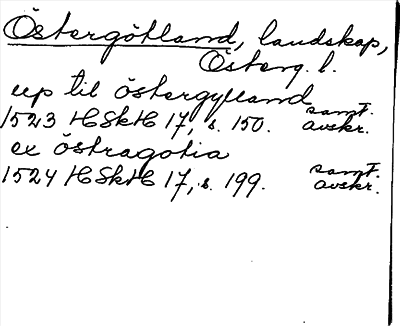 Östergötland, landskap,
Österg. l.
up til östergylland
1523 HSkH 17, s. 150. samt. avskr.
ex östragotia
1524 HSkH 17, s. 199. samt. avskr.